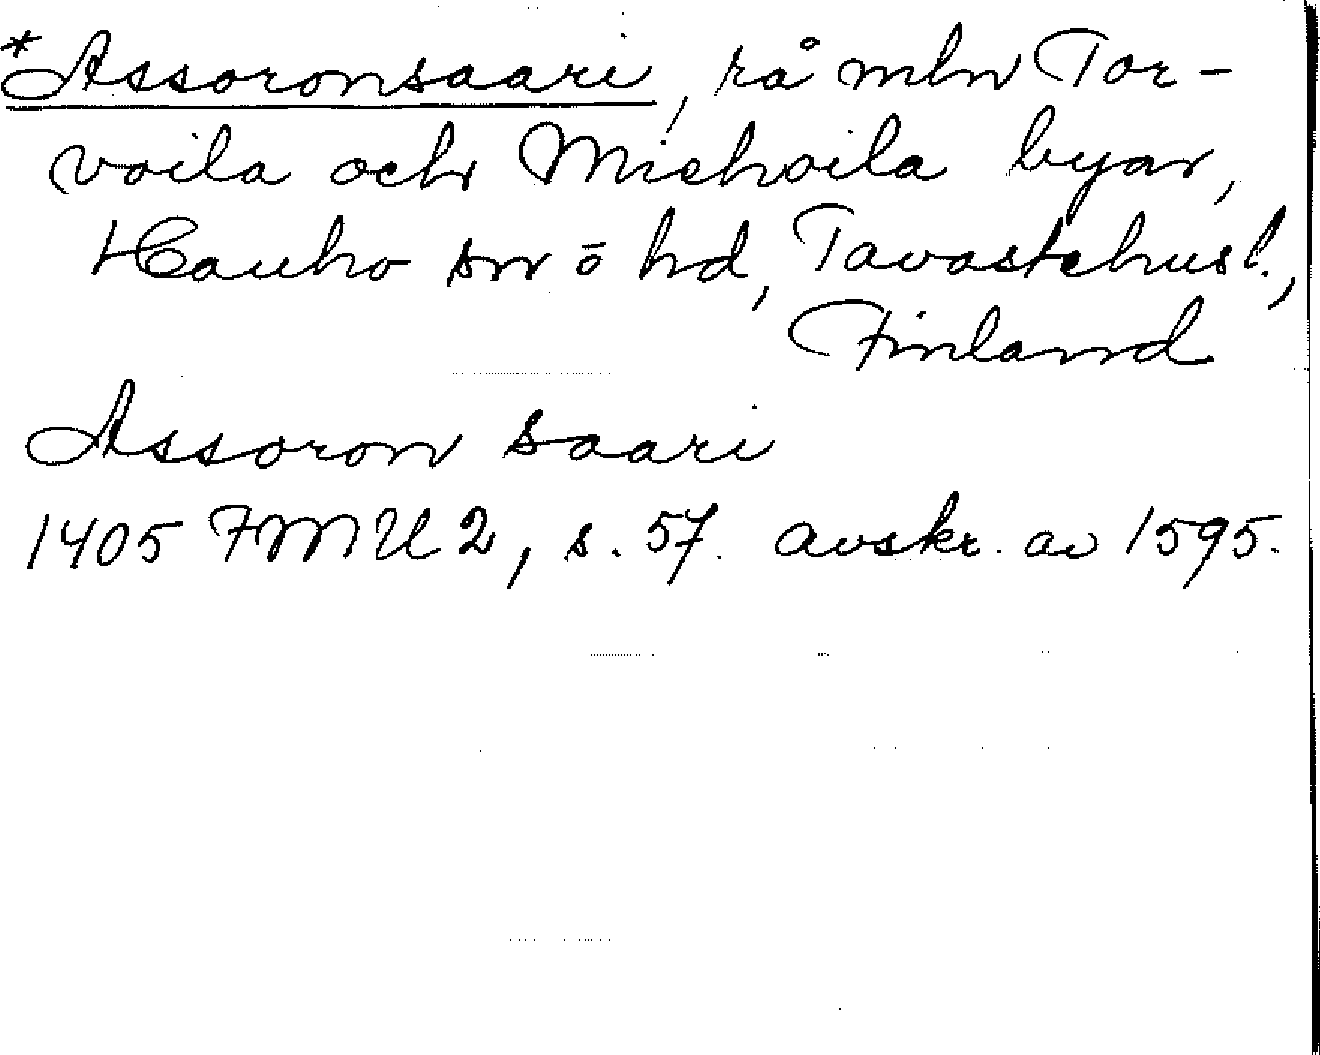 *Assoronsaari, rå mln Tor-
voila och Miehoila byar,
Hauho sn ō hd, Tavastehus l.,
Finland
Assoron saari
1405 FMU 2, s. 57. avskr. av 1595.